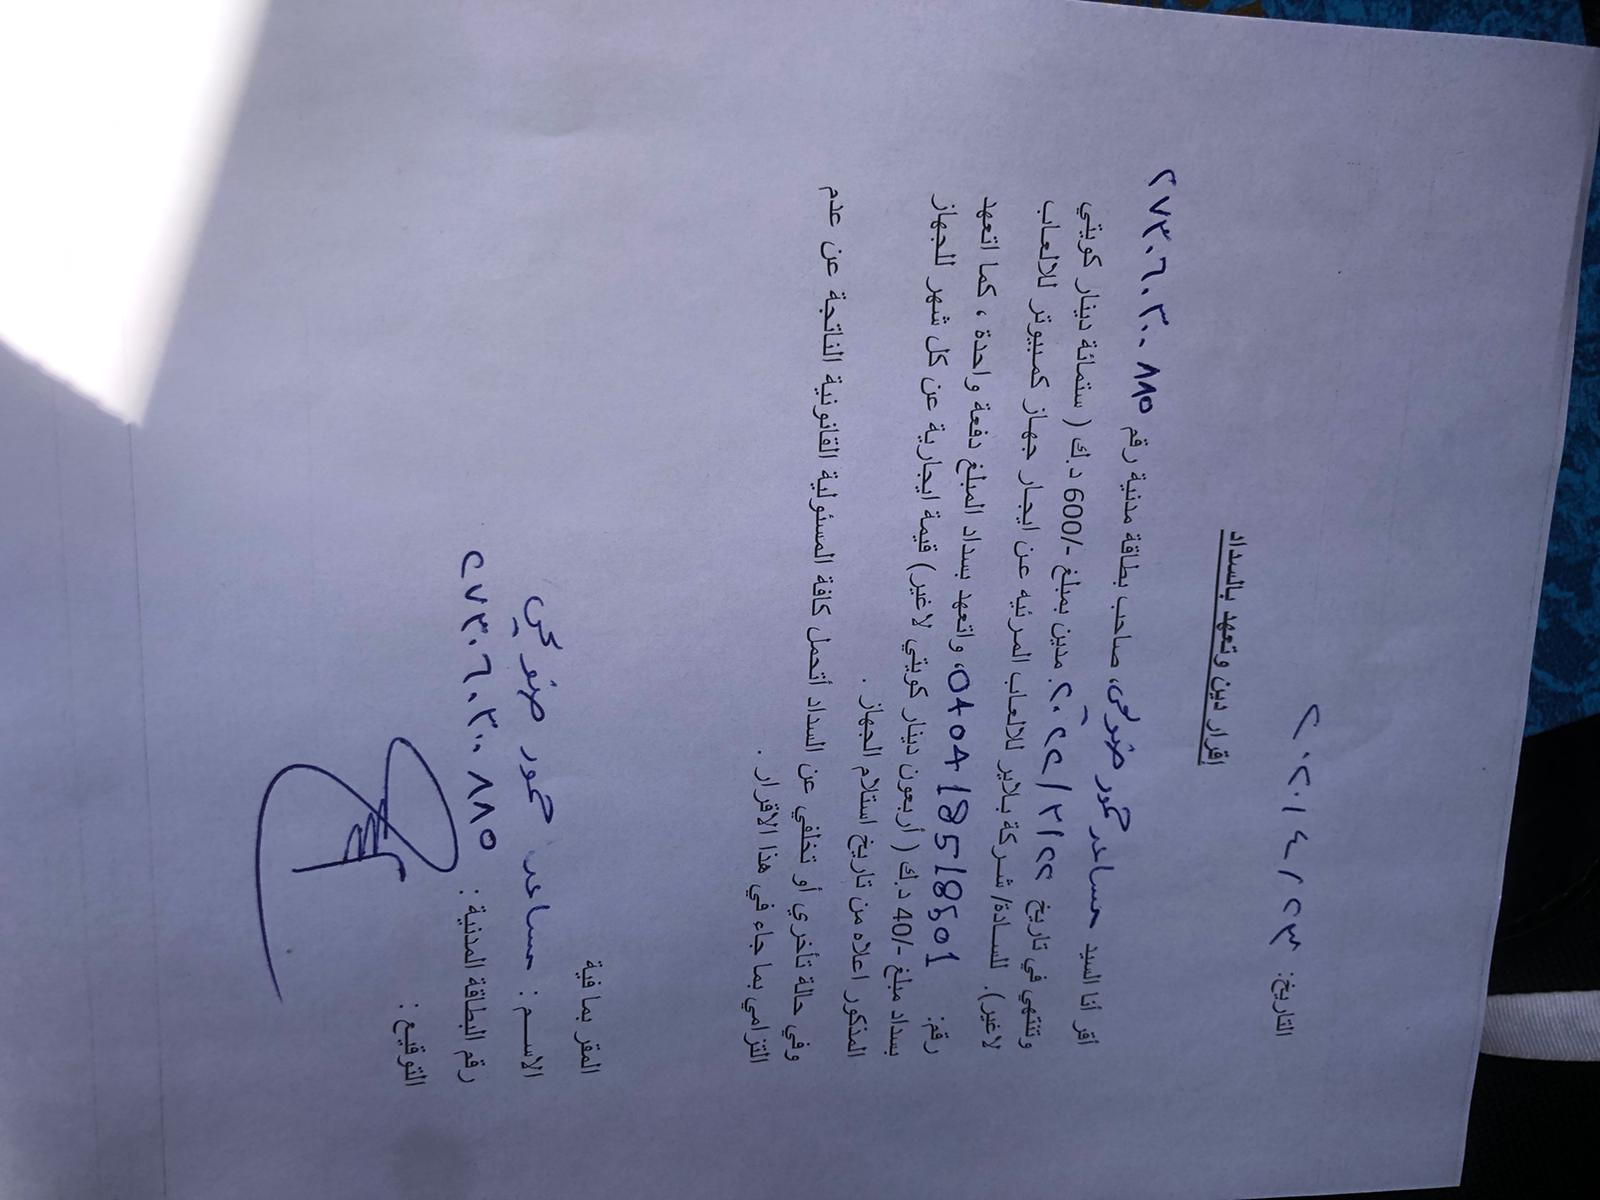 التاريخ: ٢٠٢١/٤/٢٣
اقرار دين وتعهد بالسداد
أقر أنا السيد مساعد حمور صنو ، صاحب بطاقة مدنية رقم ٢٧٣٠٦٠٣٠٠٨٨٥
وتنتهي في تاريخ ٢٠٢٢/٢/٢٢ مدين بمبلغ -/600 د.ك ( ستمائة دينار كويتي
لاغير). للسادة/ شركة بلاير للالعاب المرئيه عن ايجار جهاز كمبيوتر للالعاب
رقم: 0404185/8501، واتعهد بسداد المبلغ دفعة واحدة ، كما اتعهد
بسداد مبلغ -/40 د.ك ( أربعون دينار كويتي لاغير) قيمة ايجارية عن كل شهر للجهاز
المذكور اعلاه من تاريخ استلام الجهاز .
وفي حالة تأخري أو تخلفي عن السداد أتحمل كافة المسئولية القانونية الناتجة عن عدم
التزامي بما جاء في هذا الاقرار .
المقر بما فية
الاســم : مساعد
رقم البطاقة المدنية : ٢٧٣٠٦٠٣٠٠٨٨٥
التوقيع :